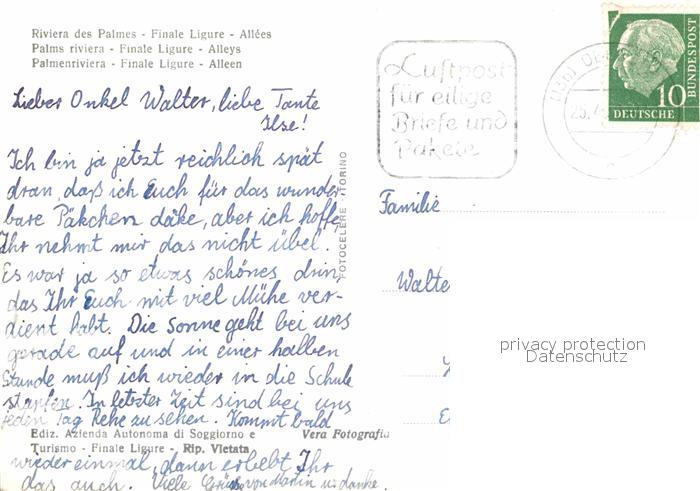 Riviera des Palmes - Finale Ligure - Allées
Palms riviera - Finale Ligure - Alleys
Palmenriviera - Finale Ligure - Alleen
Lieber Onkel Walter, liebe Tante
Ilse!
Ich bin ja jetzt reichlich spät
dran, daß ich Euch für das wunder-
bare Päkchen dake, aber ich hoffe,
Ihr nehmt mir das nicht übel.
Es war ja so etwas schönes drin,
das Ihr Euch mit viel Mühe ver-
dient habt. Die Sonne geht bei uns
gerade auf und in einer halben
Stunde muß ich wieder in die Schule
starten. In letzter Zeit sind bei uns
jeden Tag Rehe zu sehen. Kommt bald
Ediz. Azienda Autonoma di Soggiorno e
Turismo - Finale Ligure - Rip. Vietata
Vera Fotografia
wieder einmal, dann erlebt Ihr
das auch. Viele Grüße von Martin u. danke.
FOTOCELERE - TORINO
Luftpost
für eilige
Briefe und
Pakete
25.4
10
DEUTSCHE
BUNDESPOST
Familie
Walte
privacy protection
Datenschutz